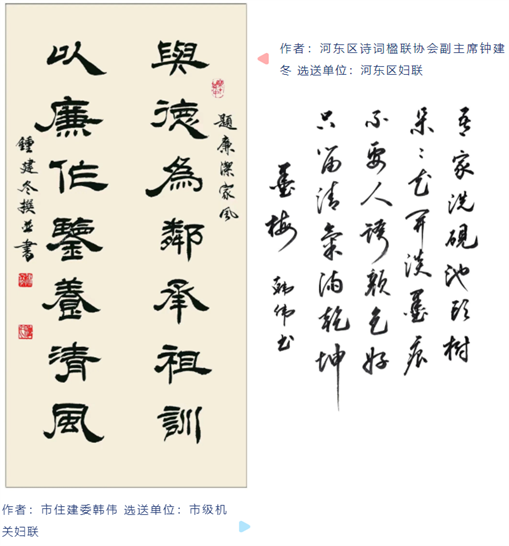 作者：河东区诗词楹联协会副主席钟建
冬 选送单位：河东区妇联
與德為鄰承祖訓
題廉潔家風
以廉作鑒養清風
鍾建冬撰並書
吾家洗硯池頭樹
朵々花开淡墨痕
不要人誇顏色好
只留清氣滿乾坤
墨梅 韩伟书
作者：市住建委韩伟 选送单位：市级机
关妇联